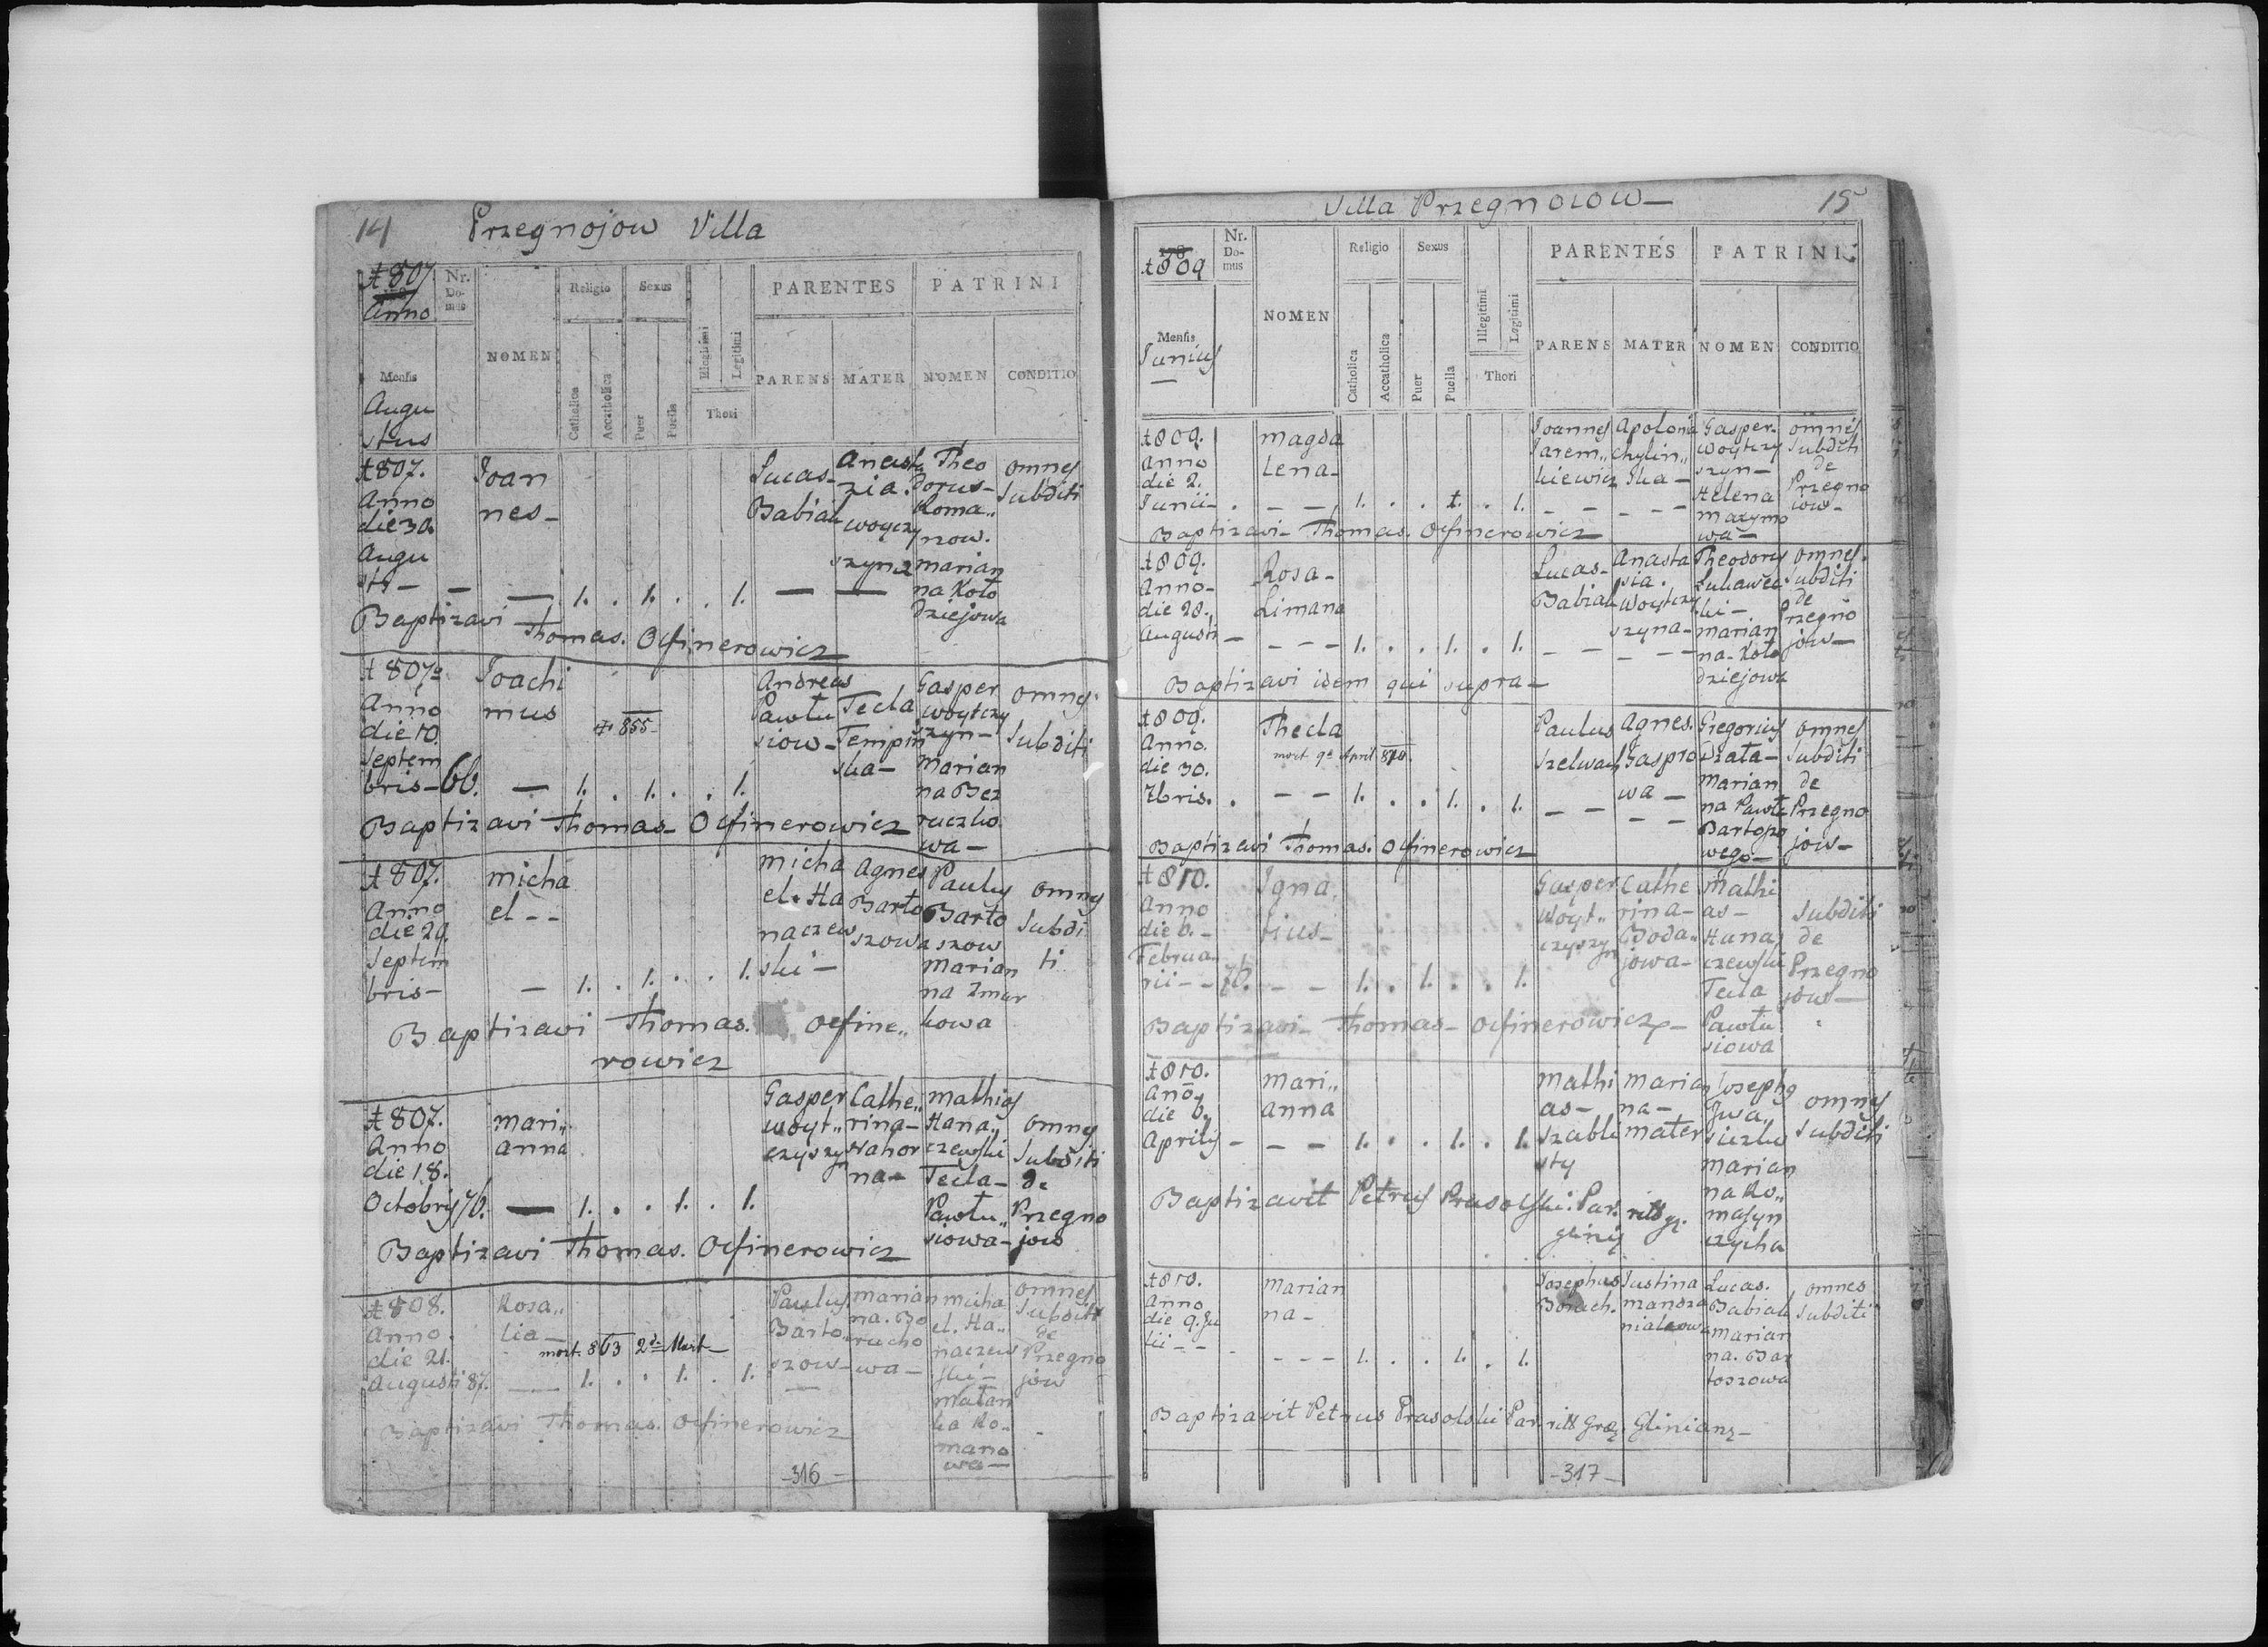 14 Przegnojow Villa
1807
Anno
Nr. Domus
NOMEN
Religio
Sexus
PARENTES
PATRINI
Mensis
Augustus
Catholica
Accatholica
Puer
Puella
Illegitimi
Legitimi
Thori
PARENS
MATER
NOMEN
CONDITIO
1807.
Anno
die 30
Augu
sti —
Joan
nes —
1. . 1. . . 1.
Lucas
Babiak
Anasta
zia.
woyczy
szyna
Theo
dorus
Roma„
now.
marian
na Koło
dziejowa
omnes
Subditi
Baptizavi Thomas. Ocfinerowicz
1807
Anno
die 10.
Septem
bris — 66.
Joachi
mus
855
1. . 1. . . 1.
Andreas
Pawłu
siow —
Tecla
Tempin
ska —
Gasper
woytczy
szyn —
Marian
na Bez
ruczko
wa —
omnes
Subditi
Baptizavi Thomas — Ocfinerowicz
1807.
Anno
die 29.
Septem
bris —
micha
el - -
1. . 1. . . 1.
micha
el. Ha
naczew
ski —
Agnes
Barto
szowa
Paulus
Barto
szow
Marian
na Zmur
kowa
omnes
Subdi
ti
Baptizavi Thomas. Ocfine„
rowicz
1807.
Anno
die 18.
Octobris 76.
mari„
anna
1. . . 1. . 1.
Gasper
woyt„
czyszyn
Cathe„
rina —
Nahor
na —
Mathias
Hana„
czewski
Tecla —
Pawłu„
siowa —
omnes
Subditi
de
Przegno
jow
Baptizavi Thomas. Ocfinerowicz
1808.
Anno.
die 21.
Augusti 87.
Rosa„
lia —
mort. 863 2da Mart —
1. . . 1. . 1.
Paulus
Barto„
szow —
marian
na. Bo
rucho
wa —
micha
el. Ha„
naczew
ski —
Małan
ka Ro„
mano
wa —
omnes
Subditi
de
Przegno
jow
Baptizavi Thomas. Ocfinerowicz
- 316 -
Villa Przegnoiow — 15
1809
Nr. Domus
NOMEN
Religio
Sexus
PARENTES
PATRINI
Mensis
Junius
—
Catholica
Accatholica
Puer
Puella
Illegitimi
Legitimi
Thori
PARENS
MATER
NOMEN
CONDITIO
1809.
Anno
die 2.
Junii — .
magda
lena —
1. . . 1. . 1.
Joannes
Jarem„
kiewicz
Apolonia
chylin„
ska —
Gasper.
Woytczy
szyn —
Helena
Maxymo
wa —
omnes
Subditi
de
Przegno
iow —
Baptizavi — Thomas. Ocfinerowicz
1809.
Anno —
die 28.
Augusti —
Rosa —
Limana
1. . . 1. . 1.
Lucas —
Babiak
Anasta
sia.
Woytczy
szyna —
Theodorus
Lukawec
ki —
marian
na — Koło
dziejowa
omnes.
Subditi
de
Przegno
jow —
Baptizavi idem qui supra —
1809.
Anno.
die 30.
7bris. .
Thecla
mort 9a April 870.
1. . . 1. . 1.
Paulus
Szelwach
Agnes.
Gaspro
wa —
Gregorius
Działa —
Marian
na Pawła
Bartoszo
wego —
omnes
Subditi
de
Przegno
jow —
Baptizavi Thomas. Ocfinerowicz
1810.
Anno
die 6. —
Februa
rii - - 76.
Igna„
tius —
1. . 1. . . 1.
Gasper
Woyt„
czyszyn
Cathe
rina —
Boda„
jowa —
Mathi
as —
Hana„
czewski
Tecla
Pawłu
siowa
Subditi
de
Przegno
jow —
Baptizavi — Thomas — Ocfinerowicz —
1810.
Ano
die 6.
Aprilis —
mari„
anna
1. . . 1. . 1.
Mathi
as —
Szabli
sty
Marian
na —
mater
Josephus
Jwa„
siczko
Marian
na Ro„
masyn
czycha
omnes
Subditi
Baptizavit Petrus Prasolski. Par. ritt gr.
1810.
Anno
die 9. Ju
lii - -
Marian
na —
1. . . 1. . 1.
Josephus
Borach.
Justina
mandza
niakowa
Lucas.
Babiak
Marian
na. Bar
toszowa
omnes
Subditi
Baptizavit Petrus Prasolski Par. ritt Græ. Glinian. —
- 317 -